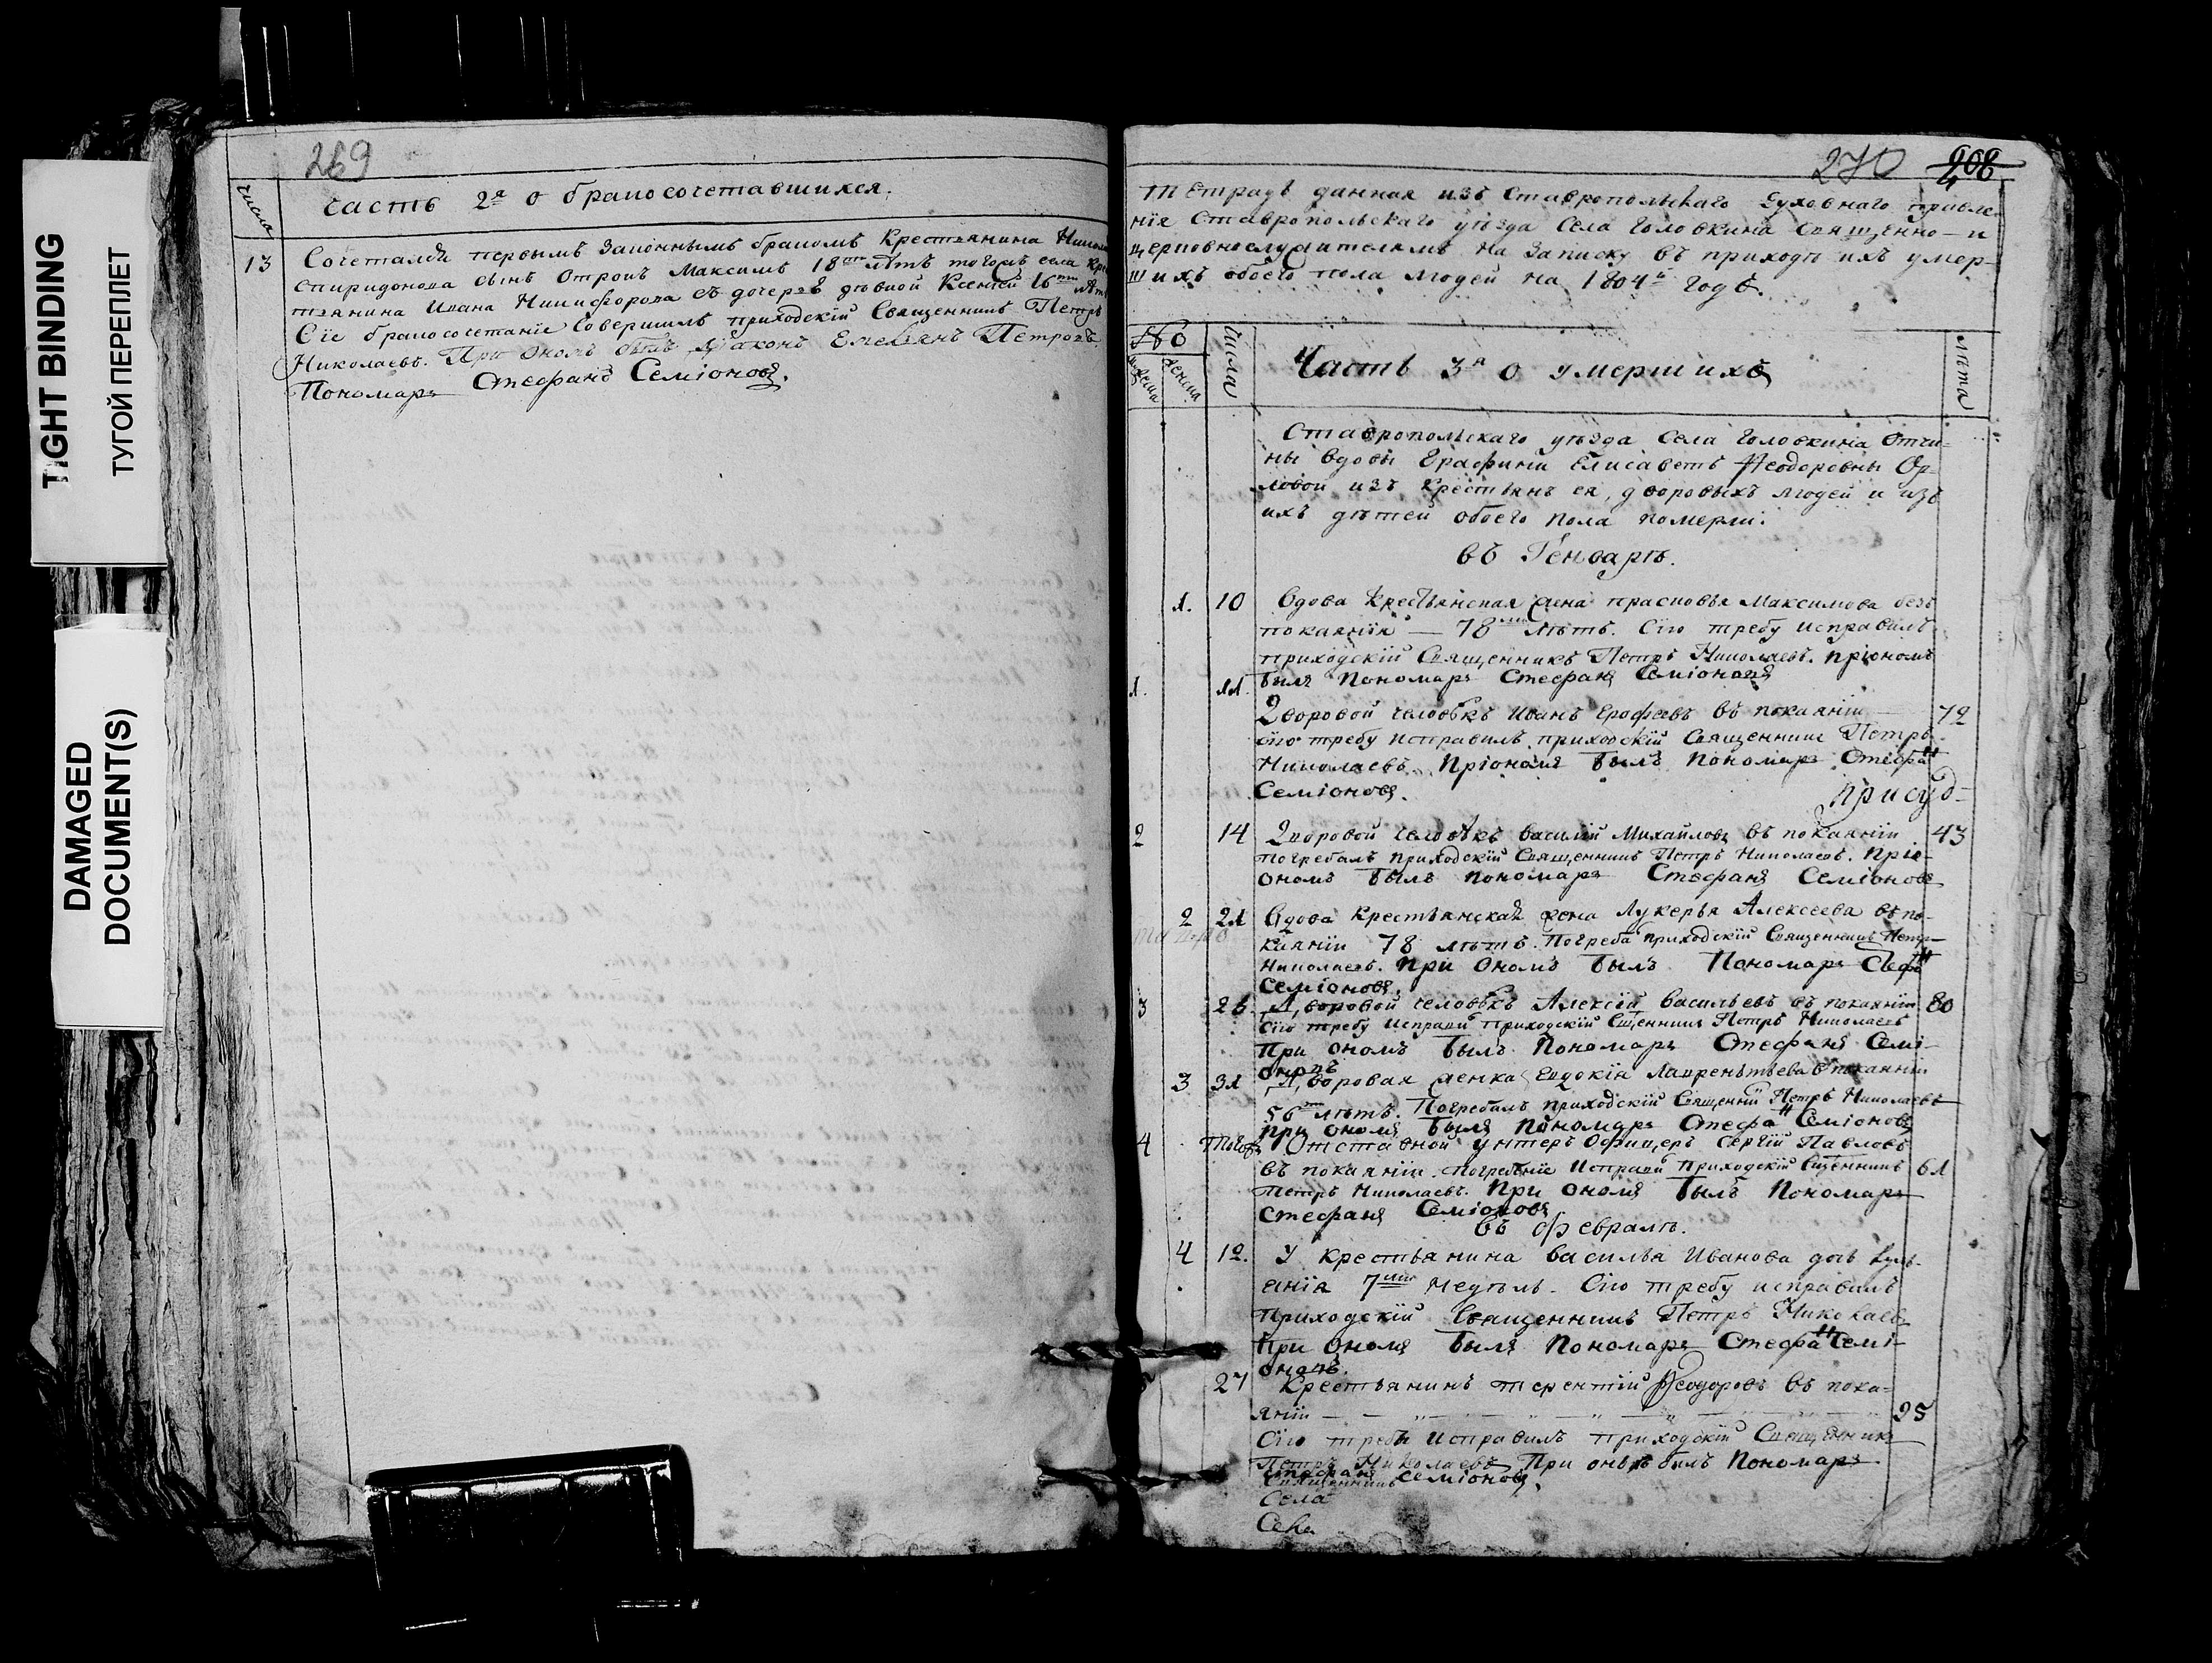 TIGHT BINDING
ТУГОЙ ПЕРЕПЛЕТ
DAMAGED
DOCUMENT(S)
269
числа
Часть 2я о бракосочетавшихся.
13 Сочетался первымъ законнымъ бракомъ Крестьянина
Спиридонова сынъ Отрокъ Максимъ 18ти лѣтъ тогожъ села Кре
стьянина Ивана Никифорова съ дочерью дѣвкой Ксенïей 16ти лѣтъ
Сïе бракосочетанïе совершилъ приходскïй Священникъ Петръ
Николаевъ. При ономъ былъ Дïаконъ Емельянъ Петровъ.
Пономарь Стефанъ Семïоновъ.
270 208
Тетрадь данная изъ Ставропольскаго Духовнаго правле
нïя Ставропольскаго уѣзда Села Головкина Священно- и
церковнослужителямъ на Записку въ приходѣ ихъ умер-
шихъ обоего пола людей на 1804й годъ.
№
числа
Часть 3я о умершихъ
лѣта
Ставропольскаго уѣзда Села Головкина Отчи-
ны вдовы Графини Елисаветъ Ѳеодоровны Ор-
ловой изъ крестьянъ ея, дворовыхъ людей и изъ
ихъ дѣтей обоего пола померли.
въ Генварѣ.
1. 10 Вдова Крестьянская жена Прасковья Максимова безъ
покаянïя — 78ми лѣтъ. Сïю требу исправилъ
приходскïй Священникъ Петръ Николаевъ. прïономъ
1. 11. былъ Пономарь Стефанъ Семïоновъ
Дворовой человѣкъ Иванъ Ерофеевъ въ покаянïи — 72
сïю требу исправилъ приходскïй Священникъ Петръ
Николаевъ. Прïономъ былъ Пономарь Стефанъ
Семïоновъ.
2 14 Дворовой человѣкъ Василïй Михайловъ въ покаянïи 43
погребалъ приходскïй Священникъ Петръ Николаевъ. При
ономъ былъ пономарь Стефанъ Семïоновъ
2 21 Вдова Крестьянская жена Лукерья Алексеева въ по-
каянïи 78 лѣтъ. Погреба приходскïй Священникъ Петръ
Николаевъ. При ономъ былъ Пономарь Стефанъ
Семïоновъ.
3 26. Дворовой человѣкъ Алексïй Васильевъ въ покаянïи 80
Сïю требу исправи приходскïй Сщенникъ Петръ Николаевъ
При ономъ былъ Пономарь Стефанъ Семï-
оновъ
3 31 Дворовая женка Евдокïя Лаврентьева въ покаянïи
56ти лѣтъ. Погребалъ приходскïй Священни Петръ Николаевъ
при ономъ былъ Пономарь Стефанъ Семïоновъ
4 Отставной унтеръ Офицеръ Сергïй Павловъ
въ покаянïи. погребенïе исправи приходскïй Сщенникъ 61
Петръ Николаевъ. При ономъ былъ Пономарь
Стефанъ Семïоновъ
въ Февралѣ.
4 12. У крестьянина Василья Иванова дочь
7ми недѣль. Сïю требу исправилъ
приходскïй Священникъ Петръ Николаевъ
При ономъ былъ Пономарь Стефанъ Семï-
оновъ.
27 Крестьянинъ Терентïй Ѳеодоровъ въ пока-
янïи — 95
Сïю требы исправилъ приходскïй Священникъ
Петръ Николаевъ При онѣхъ былъ Пономарь
Стефанъ Семïоновъ.
Священникъ
Села
Села